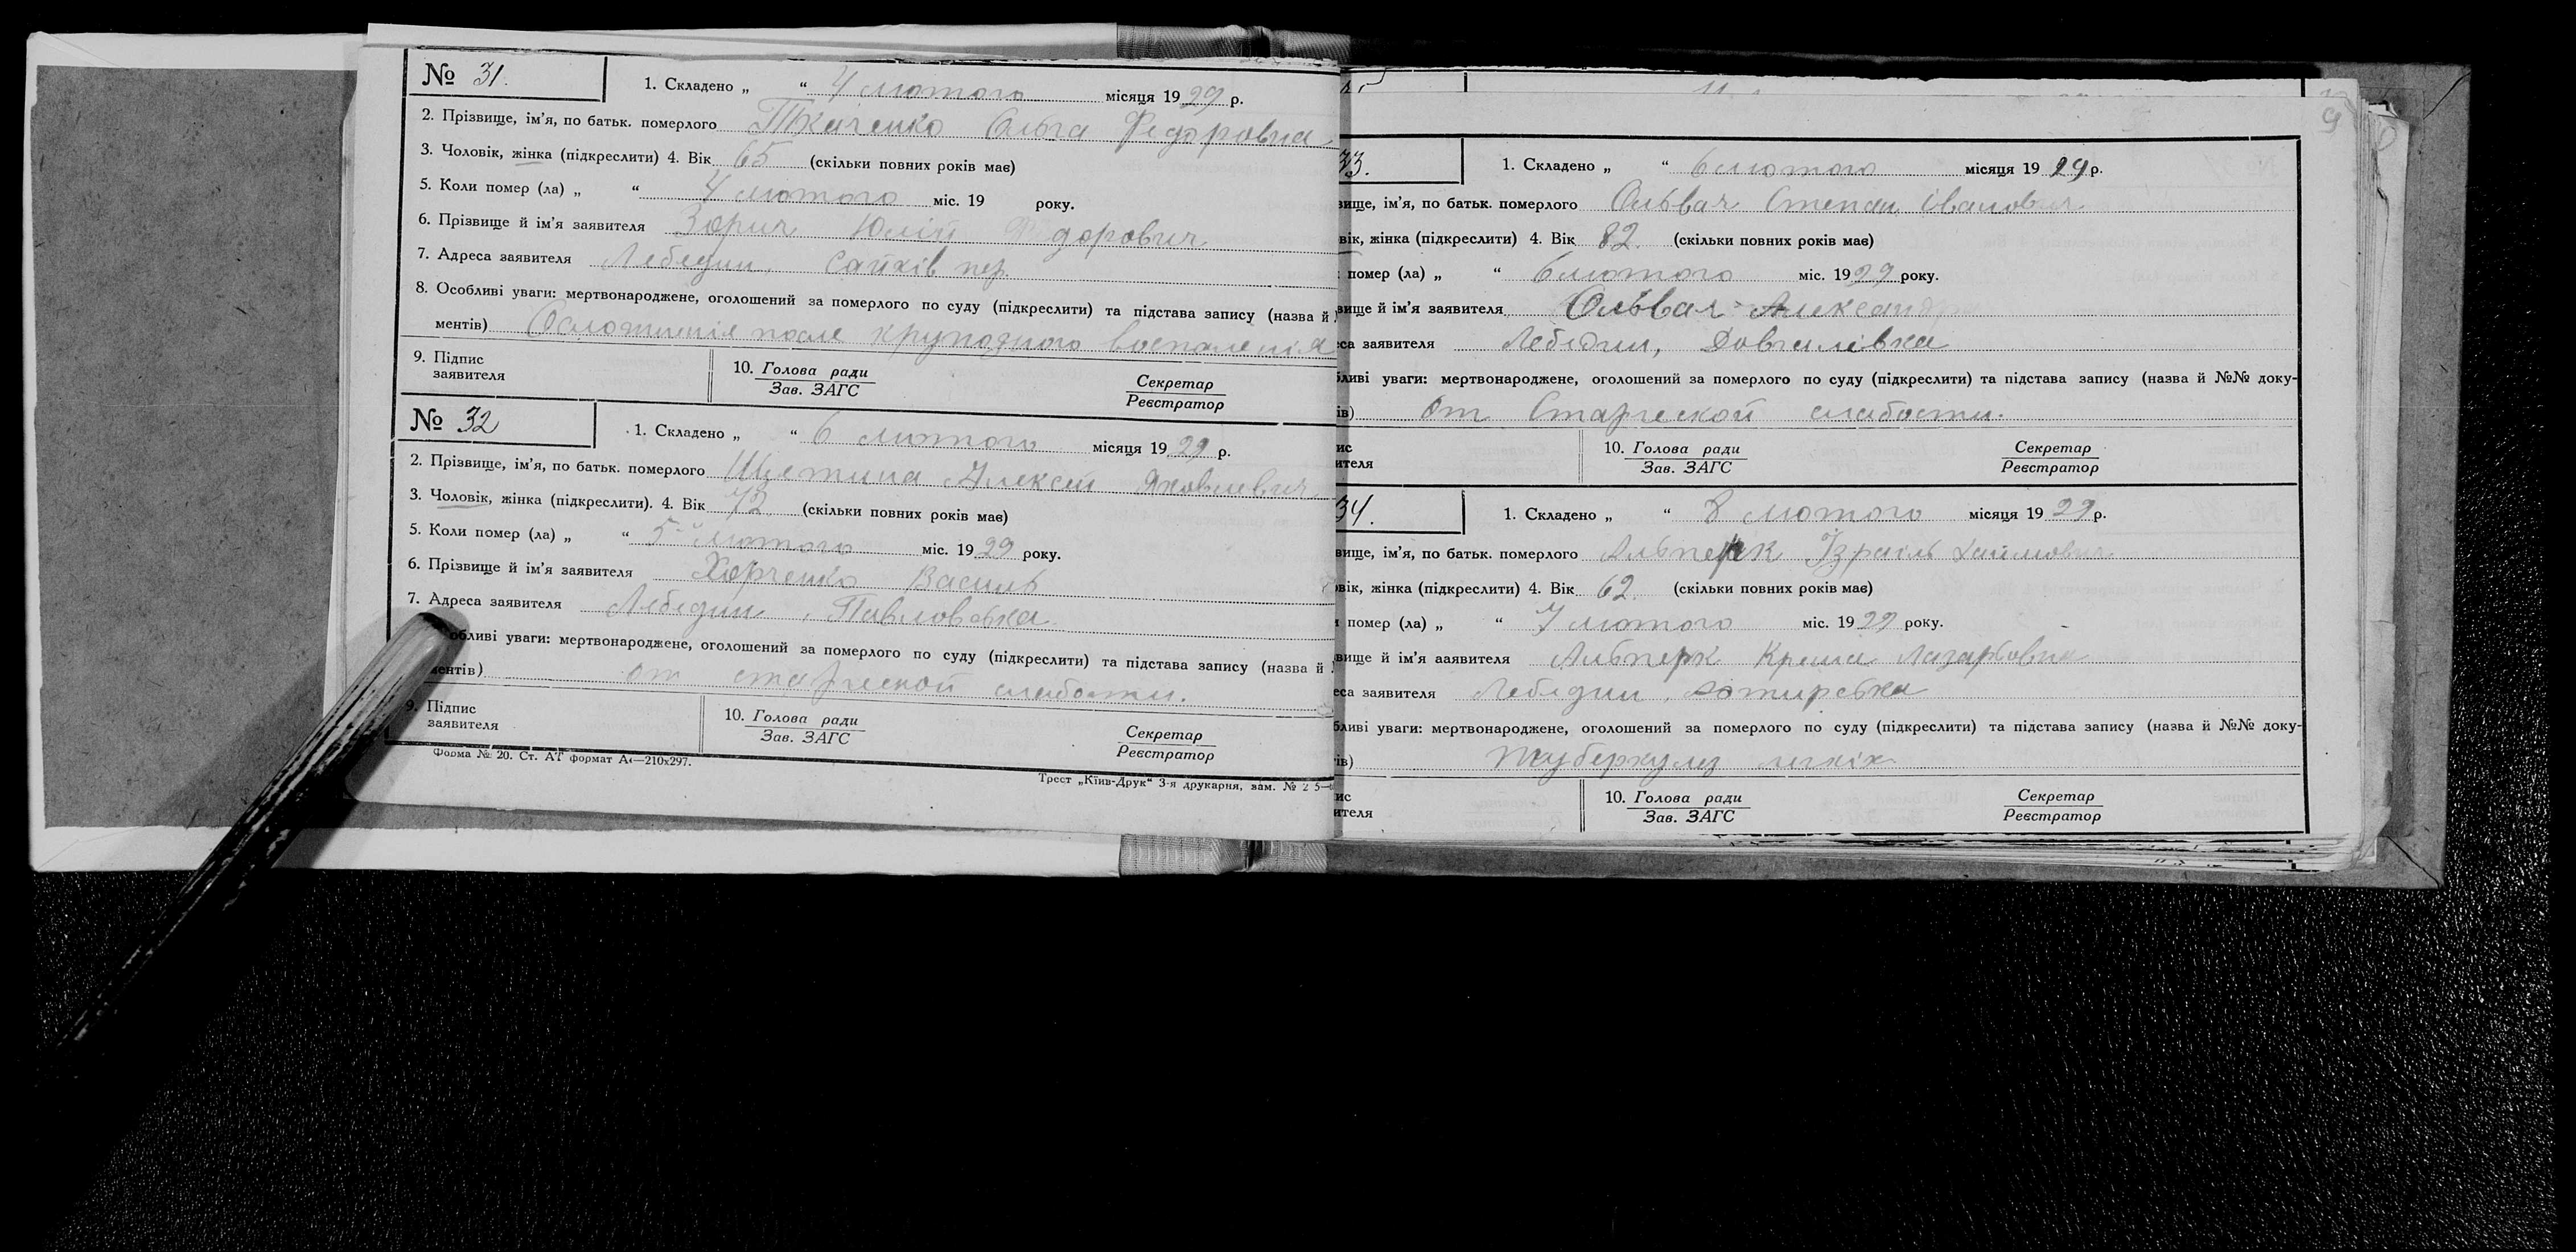 № 31. 1. Складено „ “ 4 лютого місяця 1929 р.
2. Прізвище, ім'я, по батьк. померлого Ткаченко Ольга Федоровна
3. Чоловік, жінка (підкреслити) 4. Вік 65 (скільки повних років має)
5. Коли помер (ла) „ “ 4 лютого міс. 19 року.
6. Прізвище й ім'я заявителя Зорич Юлій Федорович
7. Адреса заявителя Лебедин, пер.
8. Особливі уваги: мертвонароджене, оголошений за померлого по суду (підкреслити) та підстава запису (назва й
ментів) Осложненія после крупозного воспаленія
9. Підпис заявителя 10. Голова ради Зав. ЗАГС Секретар Реєстратор
№ 32 1. Складено „ “ 6 лютого місяця 1929 р.
2. Прізвище, ім'я, по батьк. померлого Щетина Алексей Яковлевич
3. Чоловік, жінка (підкреслити). 4. Вік 72 (скільки повних років має)
5. Коли помер (ла) „ “ 5 лютого міс. 1929 року.
6. Прізвище й ім'я заявителя Харченко Василь
7. Адреса заявителя Лебедин, Павловська
обливі уваги: мертвонароджене, оголошений за померлого по суду (підкреслити) та підстава запису (назва й
ментів) от старческой слабости.
9. Підпис заявителя 10. Голова ради Зав. ЗАГС Секретар Реєстратор
Форма № 20. Ст. АТ формат А4—210x297.
Трест „Київ-Друк“ 3-я друкарня, зам. №
9
33. 1. Складено „ “ 6 лютого місяця 1929 р.
вище, ім'я, по батьк. померлого Ольвач Степан Іванович
вік, жінка (підкреслити) 4. Вік 82. (скільки повних років має)
помер (ла) „ “ 6 лютого міс. 1929 року.
вище й ім'я заявителя Ольвач Александр
са заявителя Лебедин, Довгалівка
бливі уваги: мертвонароджене, оголошений за померлого по суду (підкреслити) та підстава запису (назва й №№ доку-
ів) От Старческой слабости.
ис ителя 10. Голова ради Зав. ЗАГС Секретар Реєстратор
34. 1. Складено „ “ 8 лютого місяця 1929 р.
вище, ім'я, по батьк. померлого Альперк Ізраіль Хаимович
овік, жінка (підкреслити) 4. Вік 62. (скільки повних років має)
помер (ла) „ “ 7 лютого міс. 1929 року.
вище й ім'я ааявителя Альперк Лазарьовна
еса заявителя Лебедин,
бливі уваги: мертвонароджене, оголошений за померлого по суду (підкреслити) та підстава запису (назва й №№ доку-
ів) Туберкулез легкіх
ис ителя 10. Голова ради Зав. ЗАГС Секретар Реєстратор